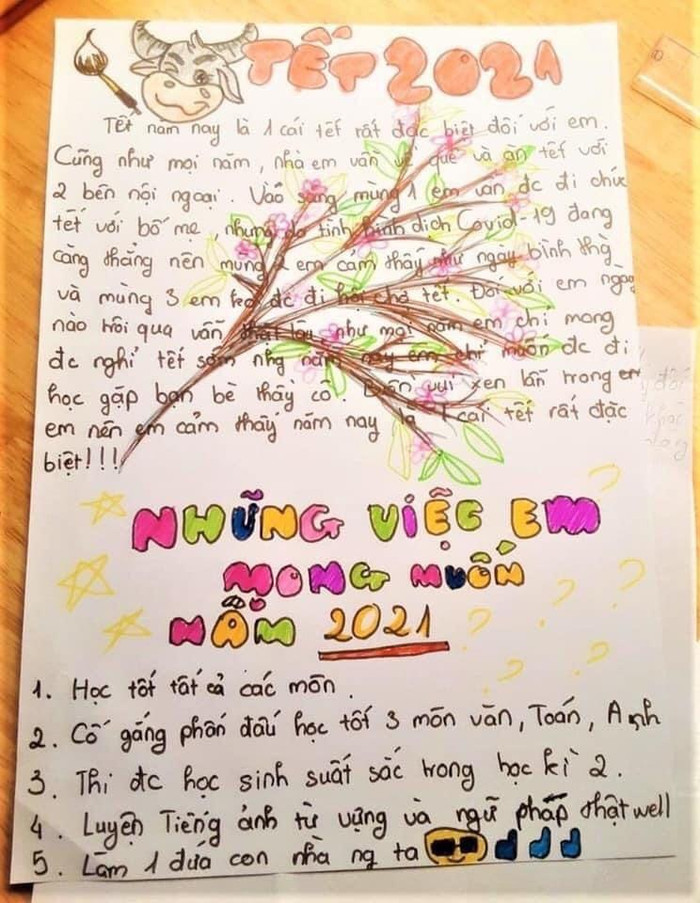 TẾT 2021
Tết năm nay là 1 cái tết rất đặc biệt đối với em.
Cũng như mọi năm, nhà em vẫn về quê và ăn tết với
2 bên nội ngoại. Vào sáng mùng 1 em vẫn đc đi chúc
tết với bố mẹ, nhưng do tình hình dịch Covid-19 đang
căng thẳng nên mùng 2 em cảm thấy như ngày bình thg
và mùng 3 em ko đc đi hội chợ tết. Đối với em ngày
nào trôi qua vẫn thật lâu, như mọi năm em chỉ mong
đc nghỉ tết sớm nhg năm nay em chỉ muốn đc đi
học gặp bạn bè thầy cô. vui xen lẫn trong em
em nên em cảm thấy năm nay là 1 cái tết rất đặc
biệt!!!
NHỮNG VIỆC EM
MONG MUỐN
NĂM 2021
1. Học tốt tất cả các môn.
2. Cố gắng phấn đấu học tốt 3 môn văn, Toán, Anh
3. Thi đc học sinh suất sắc trong học kì 2.
4. Luyện Tiếng ảnh từ vựng và ngữ pháp thật well
5. Làm 1 đứa con nhà ng ta